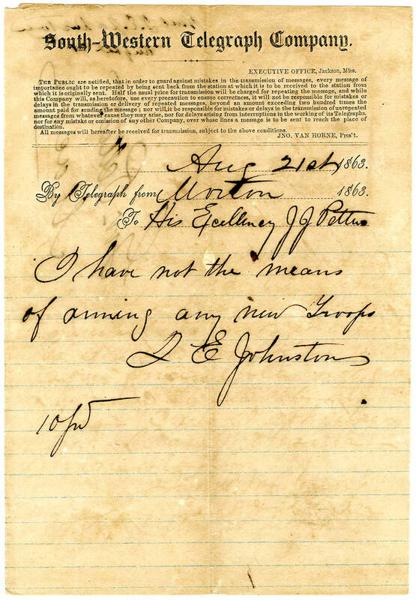 South-Western Telegraph Company.
EXECUTIVE OFFICE, Jackson, Miss.
THE PUBLIC are notified, that in order to guard against mistakes in the transmission of messages, every message of
importance ought to be repeated by being sent back from the station at which it is to be received to the station from
which it is originally sent. Half the usual price for transmission will be charged for repeating the message, and while
this Company will, as heretofore, use every precaution to ensure correctness, it will not be responsible for mistakes or
delays in the transmission or delivery of repeated messages, beyond an amount exceeding two hundred times the
amount paid for sending the message; nor will it be responsible for mistakes or delays in the transmission of unrepeated
messages from whatever cause they may arise, nor for delays arising from interruptions in the working of its Telegraphs,
nor for any mistake or omission of any other Company, over whose lines a message is to be sent to reach the place of
destination.
All messages will hereafter be received for transmission, subject to the above conditions.
JNO. VAN HORNE, Pres't.
Aug 21st 1863.
By Telegraph from Morton 1863.
To His Excellency J J Pettus
I have not the means
of arming any new Troops
J E Johnston